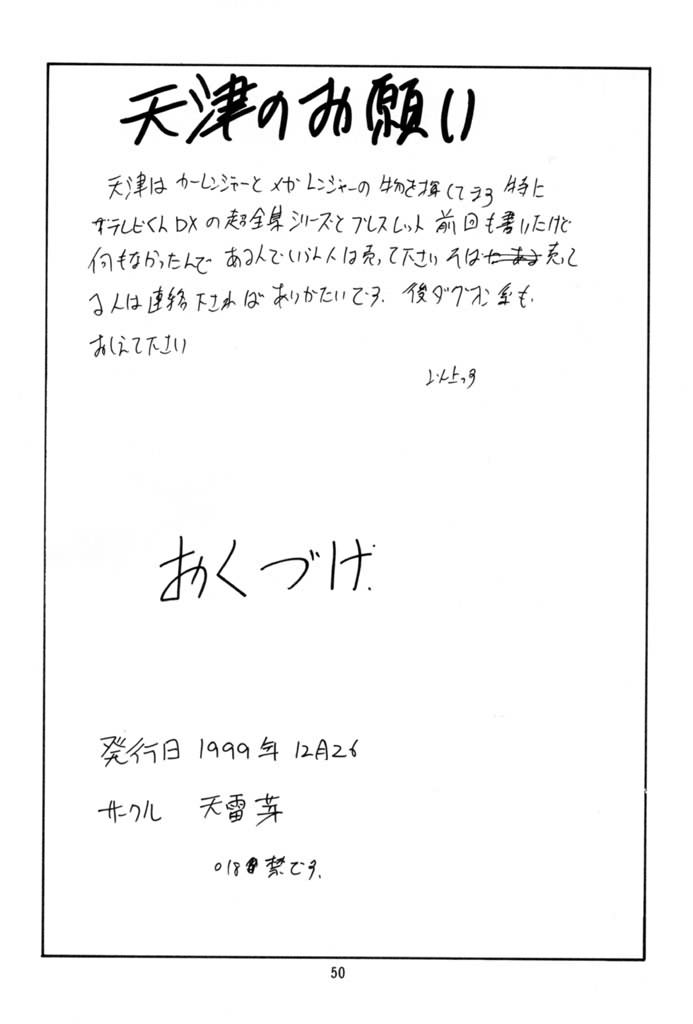 天津のお願い
天津は カーレンジャーと メガレンジャーの 物を探してヲる 特に
ザテレビくんDXの超全集シリーズとブレスレット 前回も書いたけど
何もなかったんで あるんでいらん人は売って下さい そば 売って
る人は連絡下さればありがたいです. 後ダグオン系も.
おしえて下さい
以上っす
おくづけ.
発行日 1999年 12月26
サークル 天雷芽
○18禁です.
50